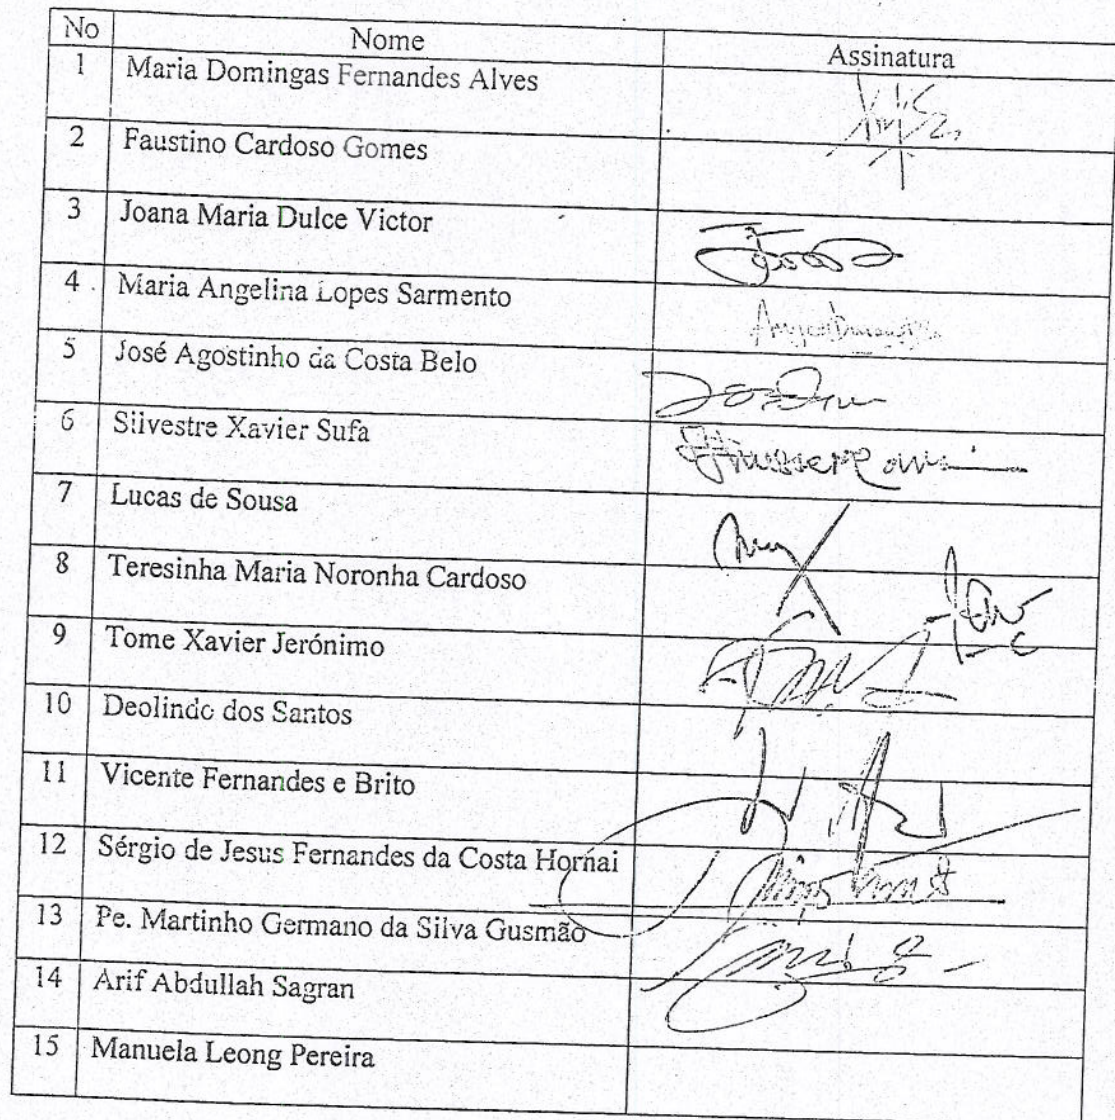 No Nome Assinatura
1 Maria Domingas Fernandes Alves
2 Faustino Cardoso Gomes
3 Joana Maria Dulce Victor
4 Maria Angelina Lopes Sarmento
5 José Agostinho da Costa Belo
6 Silvestre Xavier Sufa
7 Lucas de Sousa
8 Teresinha Maria Noronha Cardoso
9 Tome Xavier Jerónimo
10 Deolindo dos Santos
11 Vicente Fernandes e Brito
12 Sérgio de Jesus Fernandes da Costa Hornai
13 Pe. Martinho Germano da Silva Gusmão
14 Arif Abdullah Sagran
15 Manuela Leong Pereira